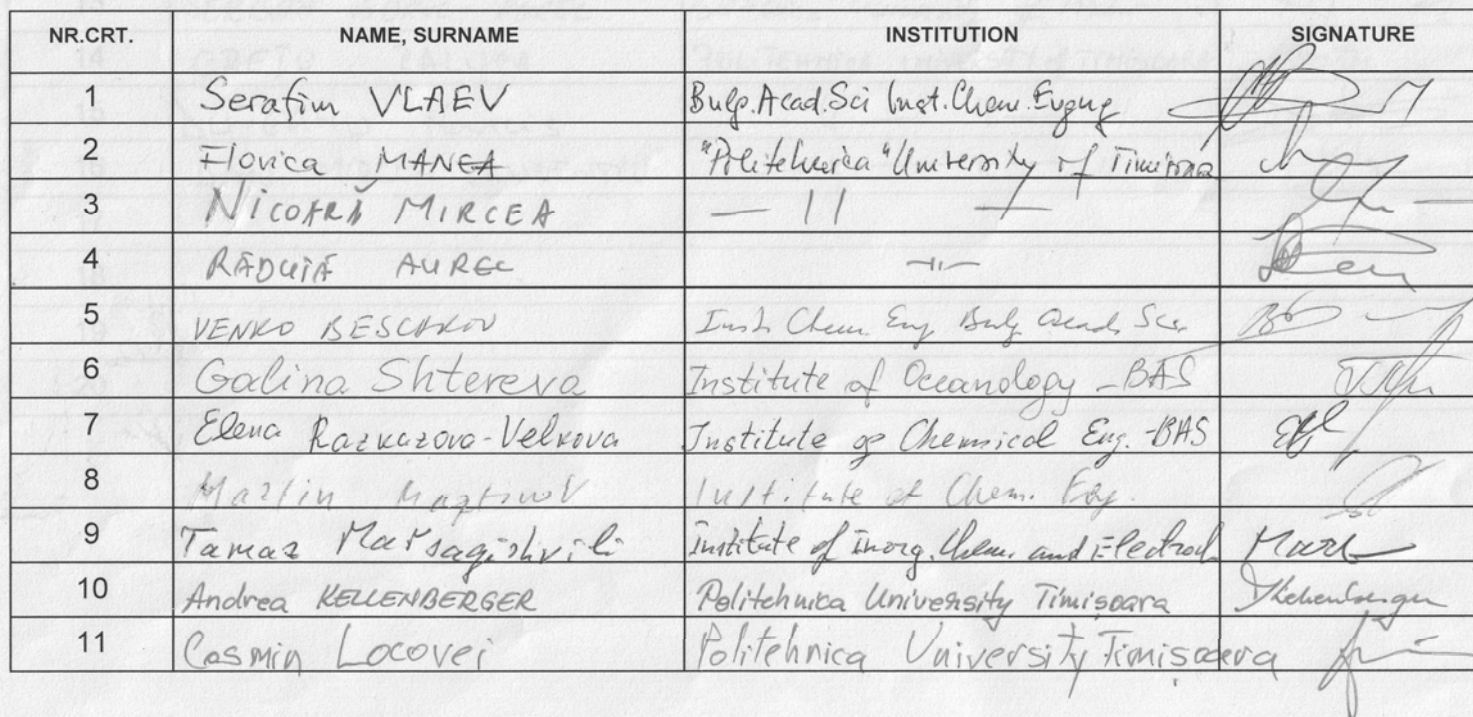 NR.CRT. NAME, SURNAME INSTITUTION SIGNATURE
1 Serafim VLAEV Bulg. Acad. Sci Inst. Chem. Engng
2 Florica MANEA "Politehnica" University of Timisoara
3 NICOARĂ MIRCEA — 11 —
4 RĂDUȚĂ AUREL —11—
5 VENKO BESCHKOV Inst. Chem. Eng. Bulg. Acad. Sci.
6 Galina Shtereva Institute of Oceanology - BAS
7 Elena Razkazova-Velkova Institute of Chemical Eng. - BAS
8 Martin Martinov Institute of Chem. Eng.
9 Tamaz Marsagishvili Institute of Inorg. Chem. and Electroch
10 Andrea KELLENBERGER Politehnica University Timisoara
11 Cosmin Locovei Politehnica University Timișoara